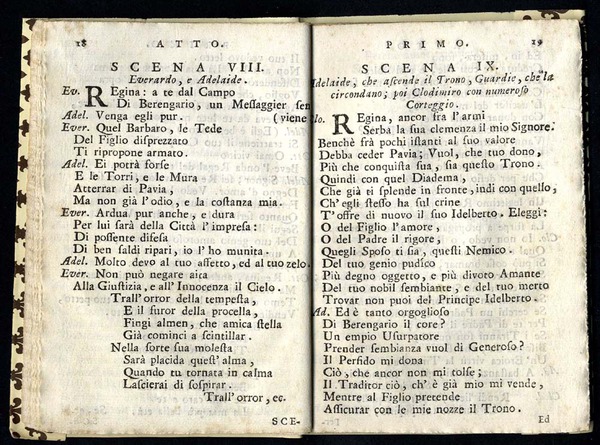 18 ATTO.
SCENA VIII.
Everardo, e Adelaide.
Ev. REgina: a te dal Campo
Di Berengario, un Messaggier sen
Adel. Venga egli pur. (viene
Ever. Quel Barbaro, le Tede
Del Figlio disprezzato
Ti ripropone armato.
Adel. Ei potrà forse
E le Torri, e le Mura
Atterrar di Pavia,
Ma non già l'odio, e la costanza mia.
Ever. Ardua pur anche, e dura
Per lui sarà della Città l'impresa:
Di possente difesa
Di ben saldi ripari, io l'ho munita.
Adel. Molto devo al tuo affetto, ed al tuo zelo.
Ever. Non può negare aita
Alla Giustizia, e all' Innocenza il Cielo.
Trall'orror della tempesta,
E il furor della procella,
Fingi almen, che amica stella
Già cominci a scintillar.
Nella sorte sua molesta
Sarà placida quest'alma,
Quando tu tornata in calma
Lascierai di sospirar.
Trall'orror, ec.
SCE-
PRIMO. 19
SCENA IX.
Adelaide, che ascende il Trono, Guardie, che la
circondano; poi Clodimiro con numeroso
Corteggio.
Clo. REgina, ancor fra l'armi
Serba la sua clemenza il mio Signore.
Benchè frà pochi istanti al suo valore
Debba ceder Pavia; Vuol, che tuo dono,
Più che conquista sua, sia questo Trono.
Quindi con quel Diadema,
Che già ti splende in fronte, indi con quello,
Ch'egli stesso ha sul crine
T'offre di nuovo il suo Idelberto. Eleggi:
O del Figlio l'amore,
O del Padre il rigore,
Quegli Sposo ti sia, questi Nemico.
Del tuo genio pudico
Più degno oggetto, e più divoto Amante
Del tuo nobil sembiante, e del tuo merto
Trovar non puoi del Principe Idelberto.
Ad. Ed è tanto orgoglioso
Di Berengario il core?
Un empio Usurpatore
Prender sembianza vuol di Generoso?
Il Perfido mi dona
Ciò, che ancor non mi tolse;
Il Traditor ciò, ch'è già mio mi vende,
Mentre al Figlio pretende
Assicurar con le mie nozze il Trono.
Ed